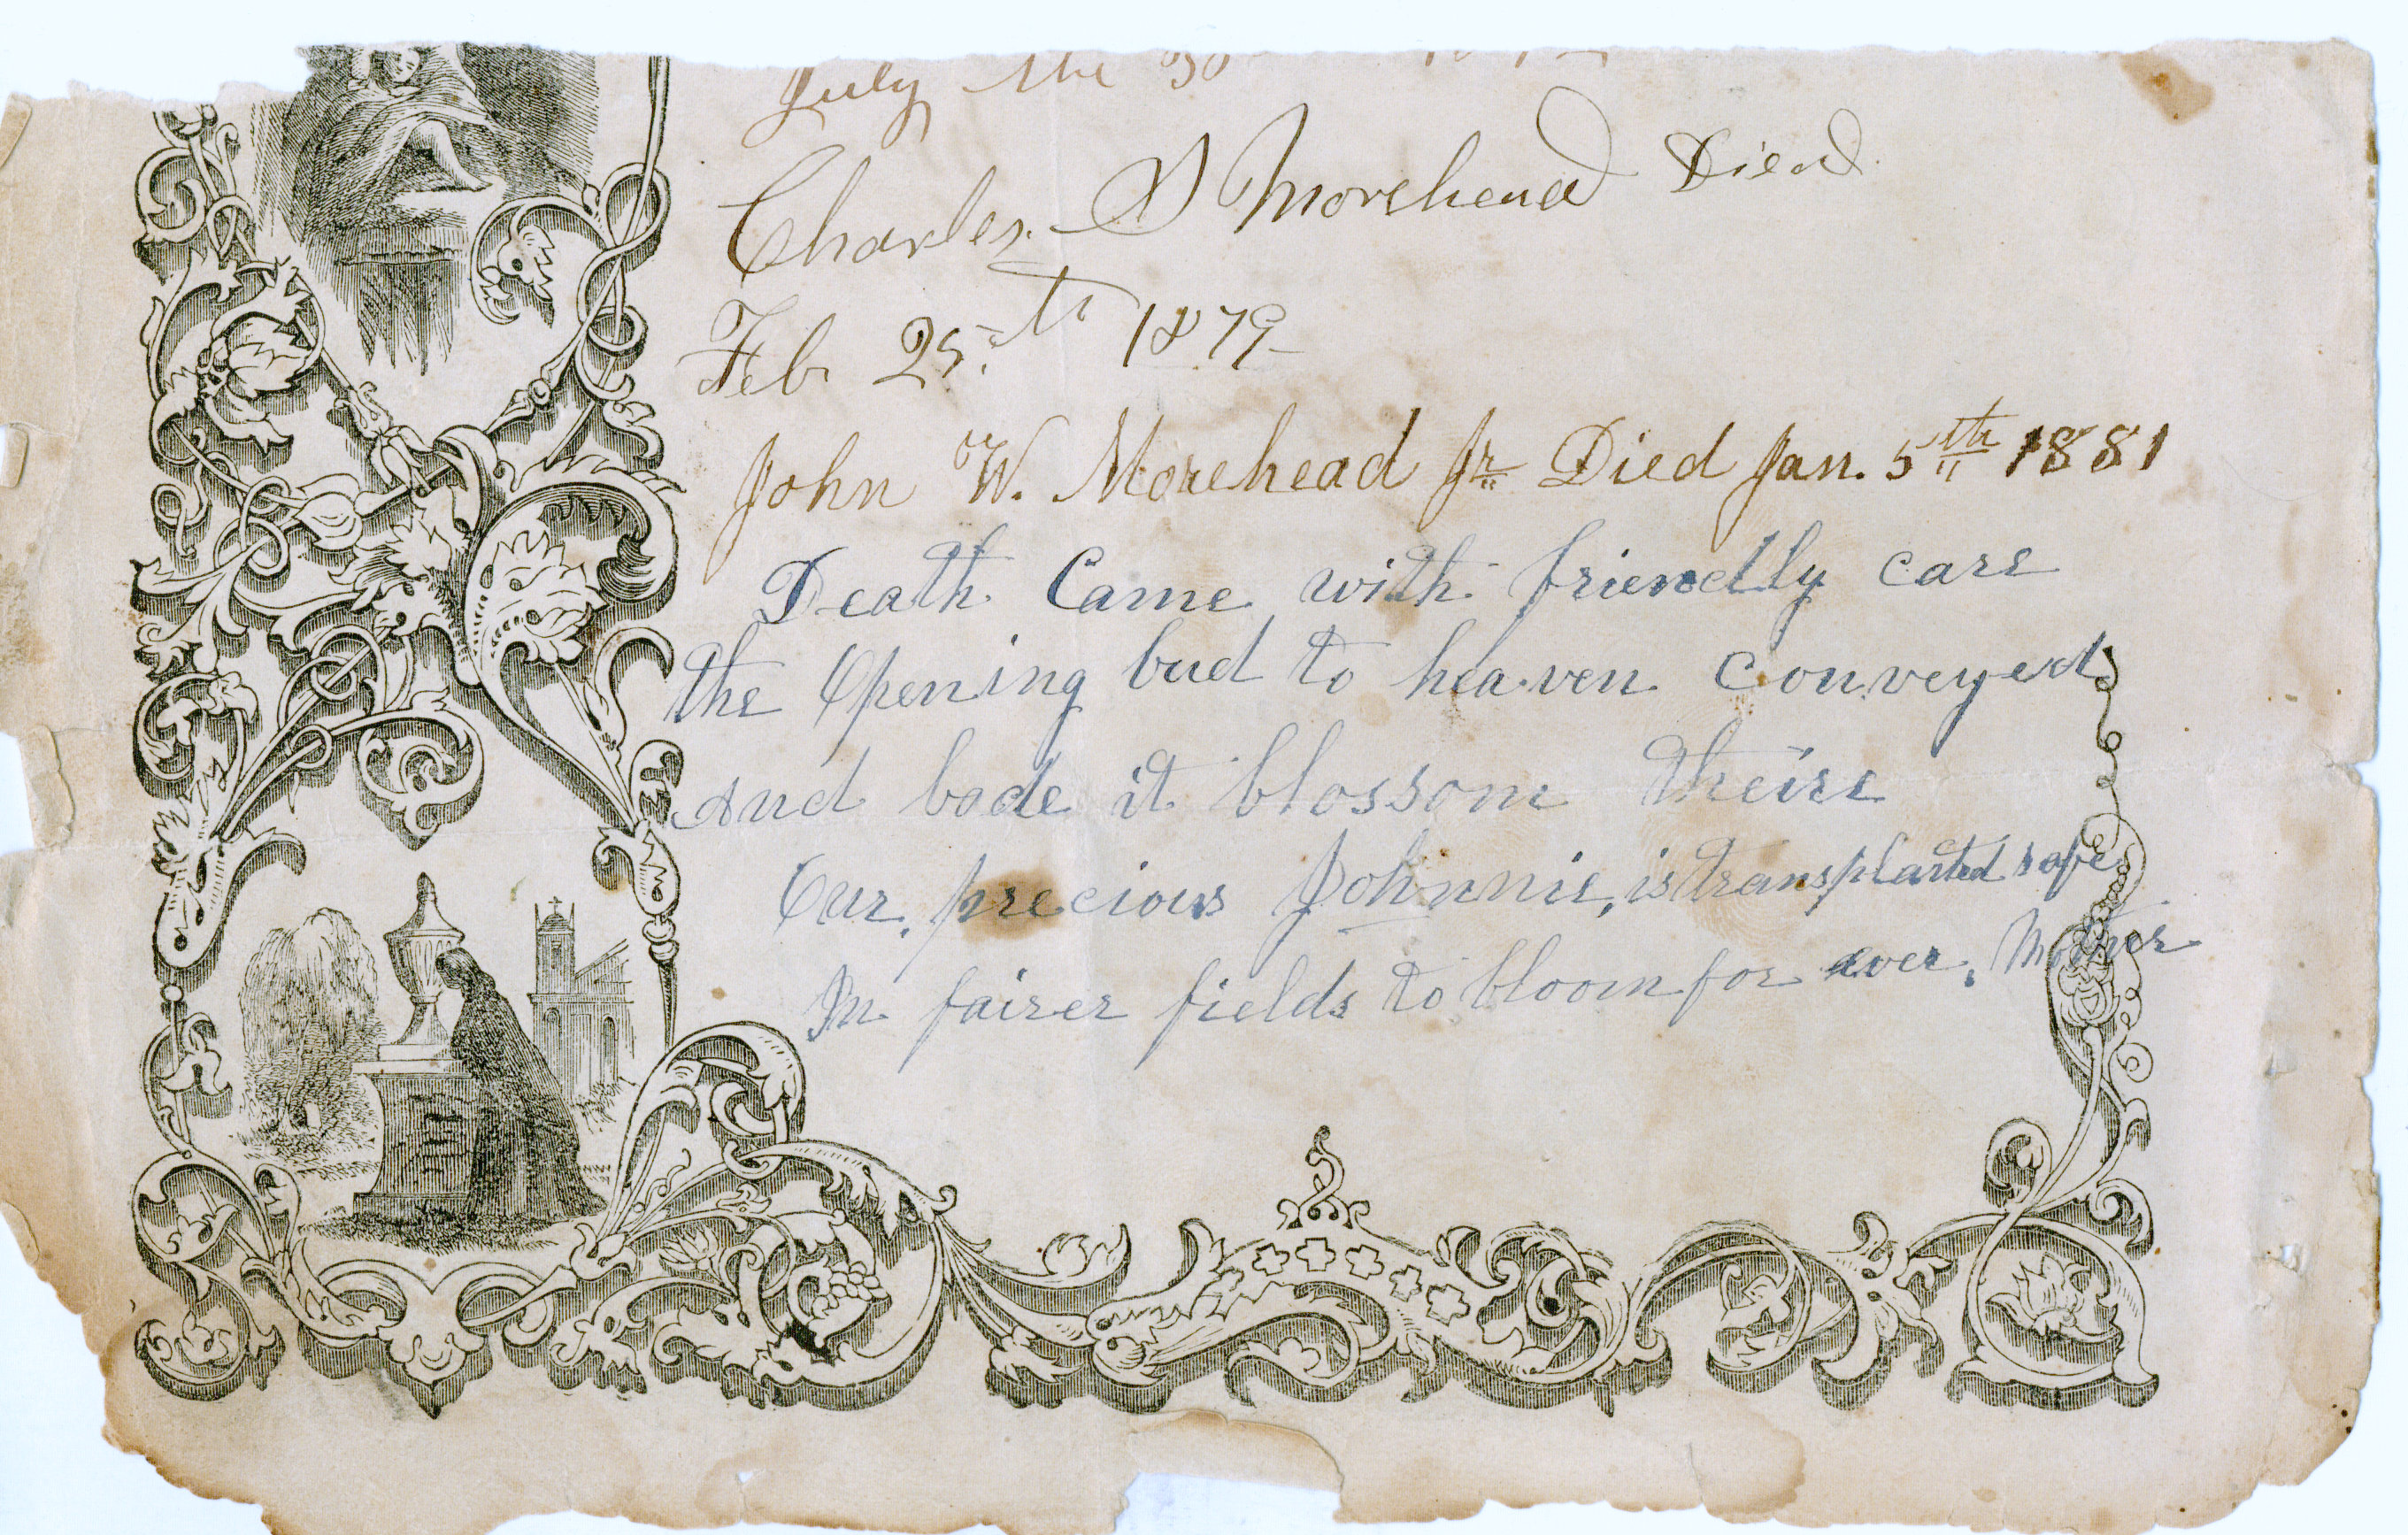 July the 30
Charles S Morehead Died
Feb 25th 1879
John W. Morehead Jr Died Jan. 5th 1881
Death Came with friendly care
the Opening bud to heaven conveyed
And bade it blossom theire
Our precious Johnnie, is transplanted safe
In fairer fields to bloom for ever. Mother